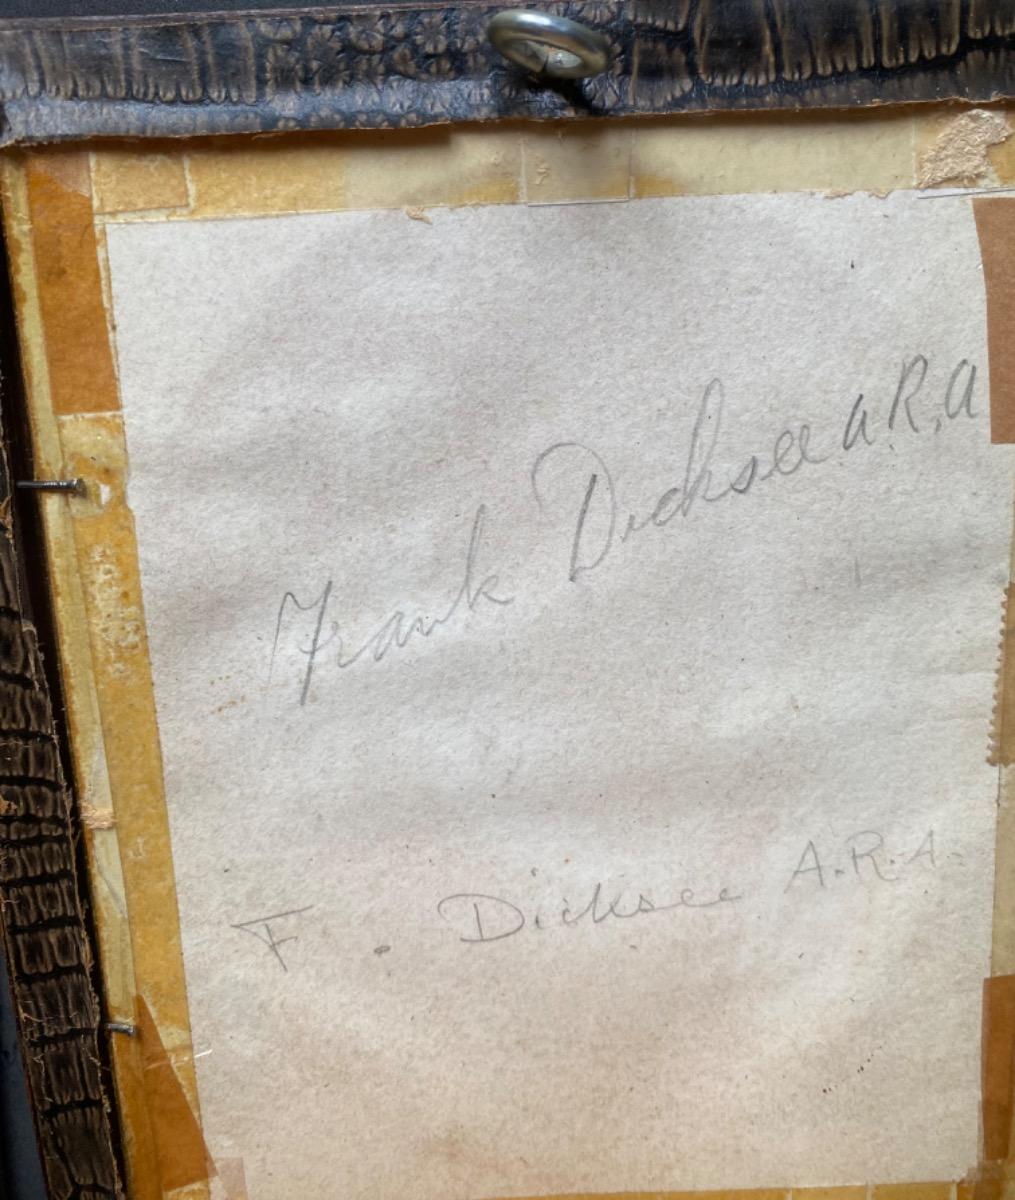 Frank Dicksee A.R.A
F. Dicksee A.R.A.